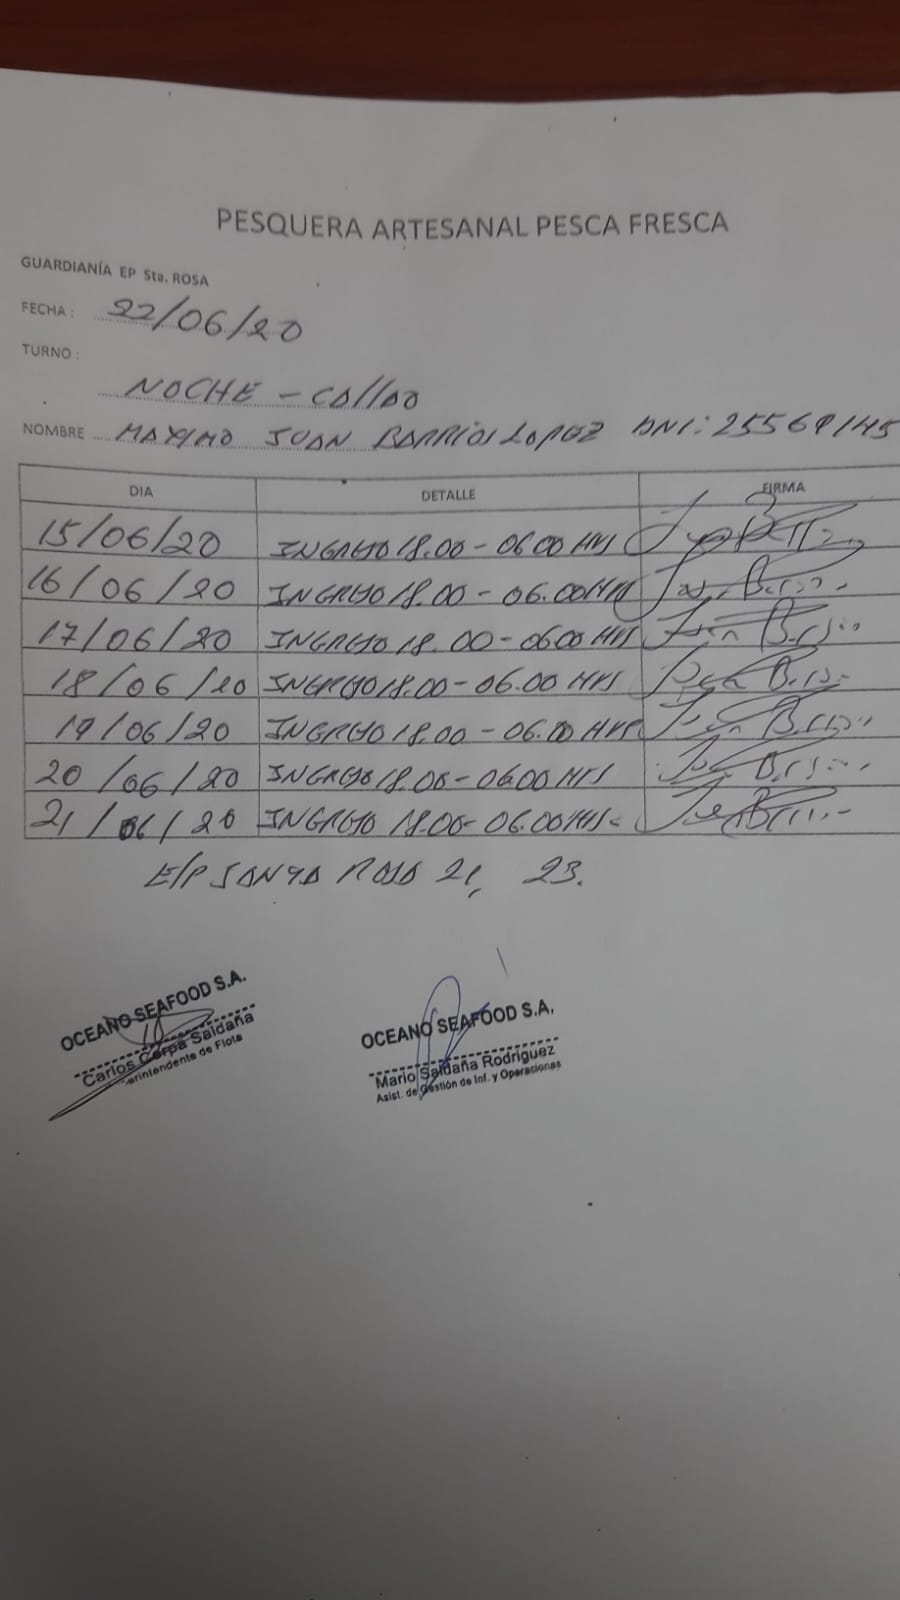 PESQUERA ARTESANAL PESCA FRESCA
GUARDIANÍA EP Sta. ROSA
FECHA : 22/06/20
TURNO :
NOCHE - CALLAO
NOMBRE MAXIMO JUAN BARRIOS LOPEZ DNI: 25569145
DIA DETALLE FIRMA
15/06/20 INGRESO 18.00 - 06 00 HRS
16/06/20 INGRESO 18.00 - 06.00 HRS
17/06/20 INGRESO 18.00 - 06 00 HRS
18/06/20 INGRESO 18.00 - 06.00 HRS
19/06/20 INGRESO 18.00 - 06.00 HRS
20/06/20 INGRESO 18.00 - 06.00 HRS
21/06/20 INGRESO 18.00 - 06.00 HRS
E/P SANTA ROSA 21, 23.
OCEANO SEAFOOD S.A.
Carlos Corpa Saldaña
erintendente de Flota
OCEANO SEAFOOD S.A.
Mario Saldaña Rodríguez
Asist. de Gestión de Inf. y Operaciones